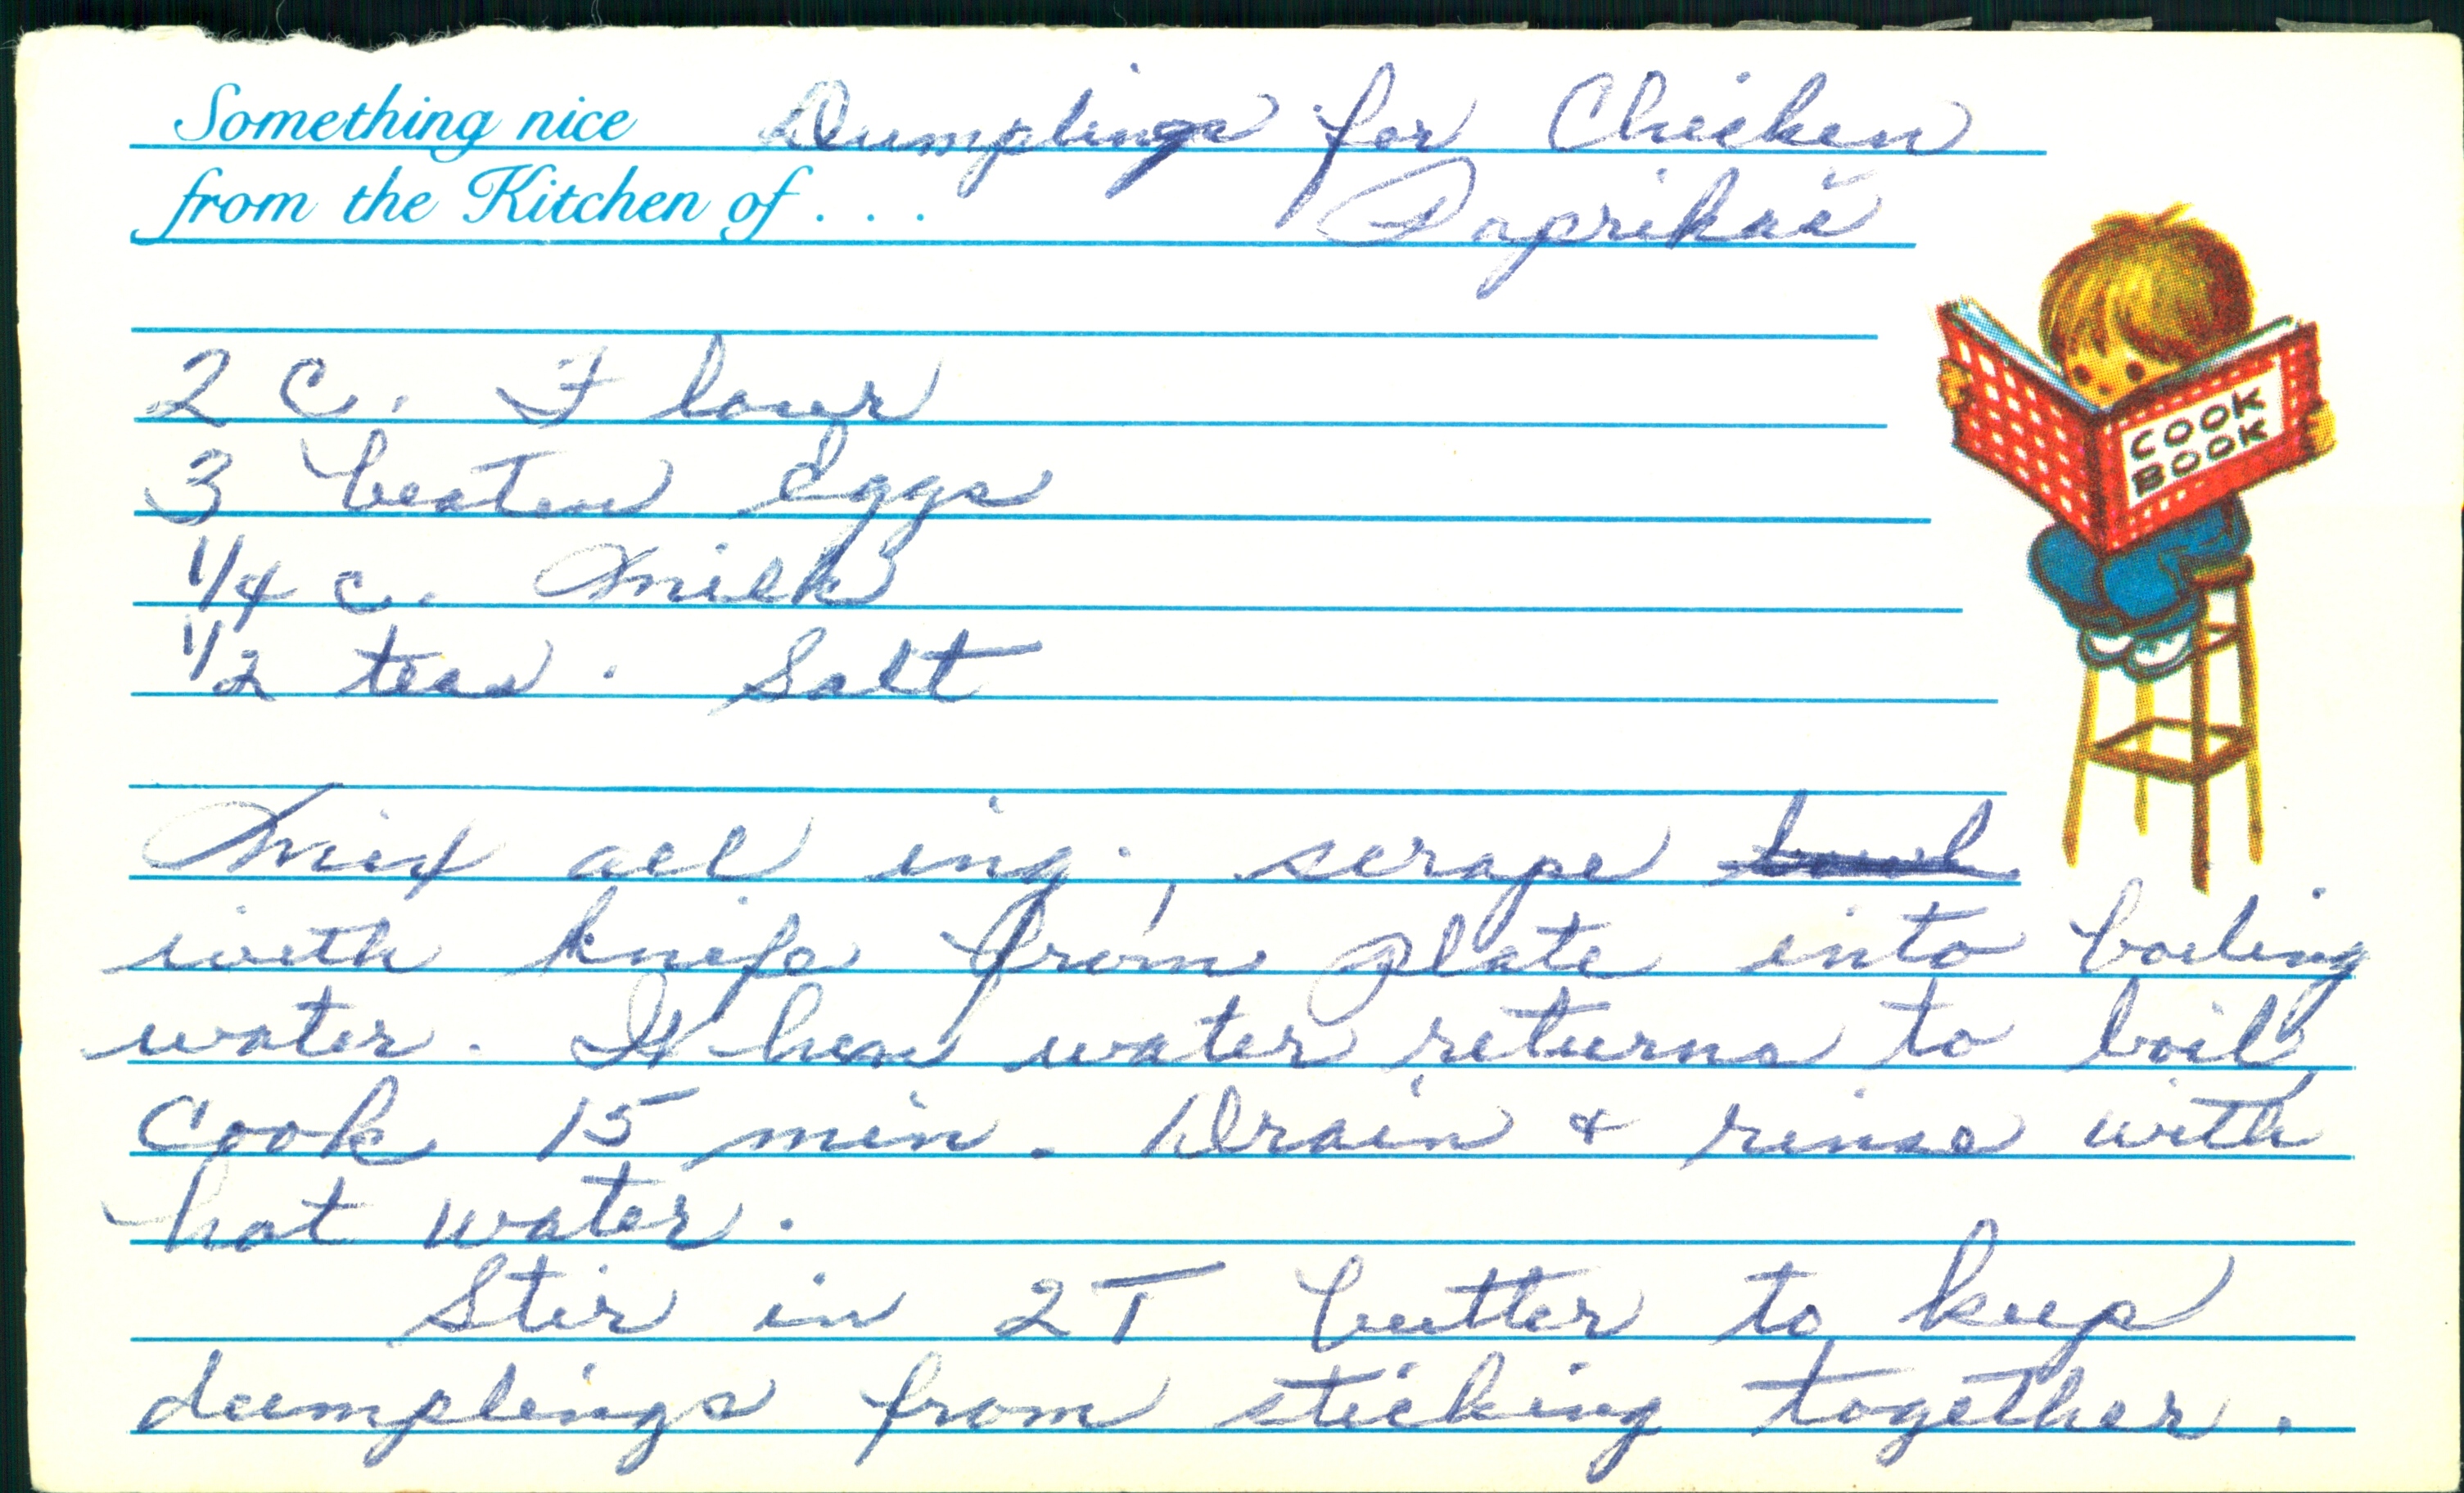 Something nice Dumplings for Chicken
from the Kitchen of . . . Paprikaš
COOK
BOOK
2 C. Flour
3 beaten Eggs
1/4 c. Milk
1/2 teas. Salt
Mix all ing., scrape bowl
with knife from plate into boiling
water. When water returns to boil,
Cook 15 min. Drain & rinse with
hot water.
Stir in 2T butter to keep
dumplings from sticking together.